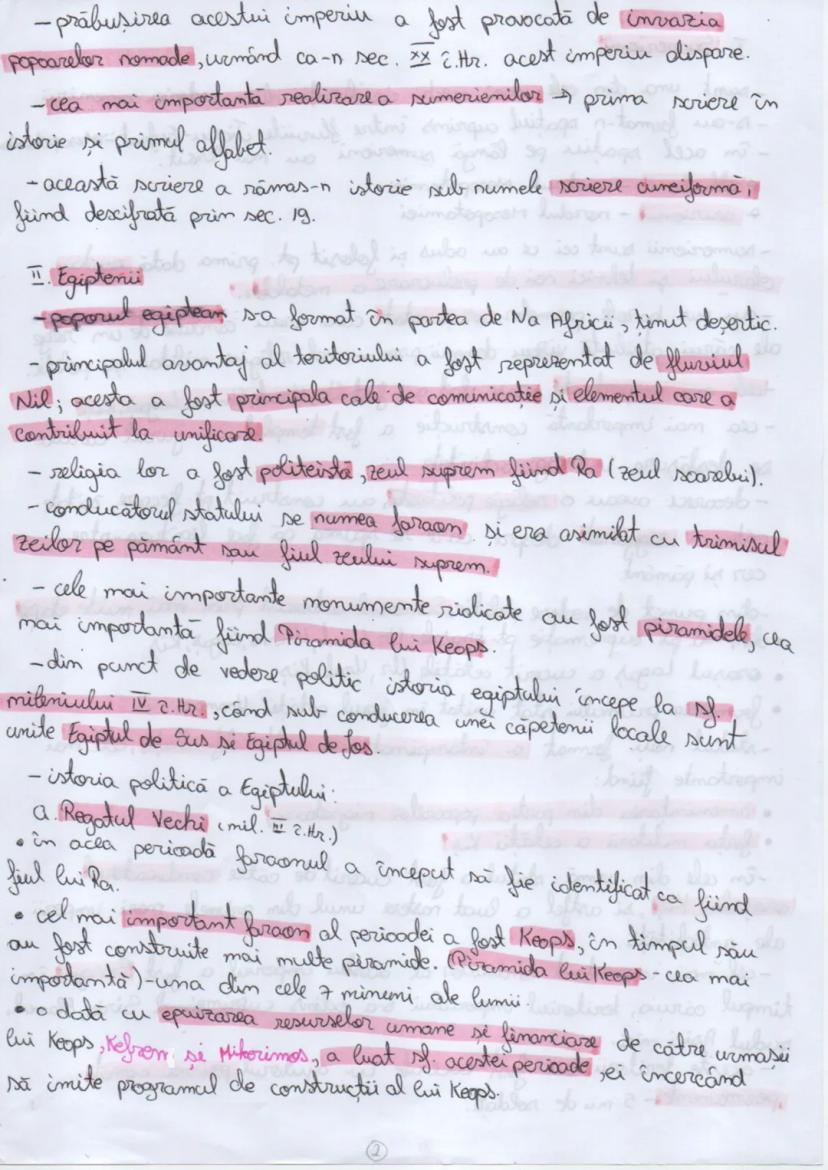 - prăbușirea acestui imperiu a fost provocată de invazia
popoarelor nomade, urmând ca-n sec. XX î.Hr. acest imperiu dispare.
- cea mai importantă realizare a sumerienilor → prima scriere în
istorie și primul alfabet.
- această scriere a rămas-n istorie sub numele scriere cuneiformă,
fiind descifrată prim sec. 19.
II. Egiptenii
- poporul egiptean s-a format în partea de N a Africii, ținut deșertic.
- principalul avantaj al teritoriului a fost reprezentat de fluviul
Nil; acesta a fost principala cale de comunicație și elementul care a
contribuit la unificare.
- religia lor a fost politeistă, zeul suprem fiind Ra (zeul soarelui).
- conducătorul statului se numea faraon și era asimilat cu trimisul
zeilor pe pământ sau fiul zeului suprem.
- cele mai importante monumente ridicate au fost piramidele, cea
mai importantă fiind Piramida lui Keops.
- din punct de vedere politic istoria egiptului începe la sf.
mileniului IV î.Hr., când sub conducerea unei capetenii locale sunt
unite Egiptul de Sus și Egiptul de Jos.
- istoria politică a Egiptului:
a. Regatul Vechi (mil. III î.Hr.)
• în acea perioadă faraonul a început să fie identificat ca fiind
fiul lui Ra.
• cel mai important faraon al perioadei a fost Keops, în timpul său
au fost construite mai multe piramide. (Piramida lui Keops - cea mai
importantă) - una din cele 7 minuni ale lumii.
• o dată cu epuizarea resurselor umane și financiare de către urmașii
lui Keops, Kefren și Mikerinos, a luat sf. acestei perioade, ei încercând
să imite programul de construcții al lui Keops.
2